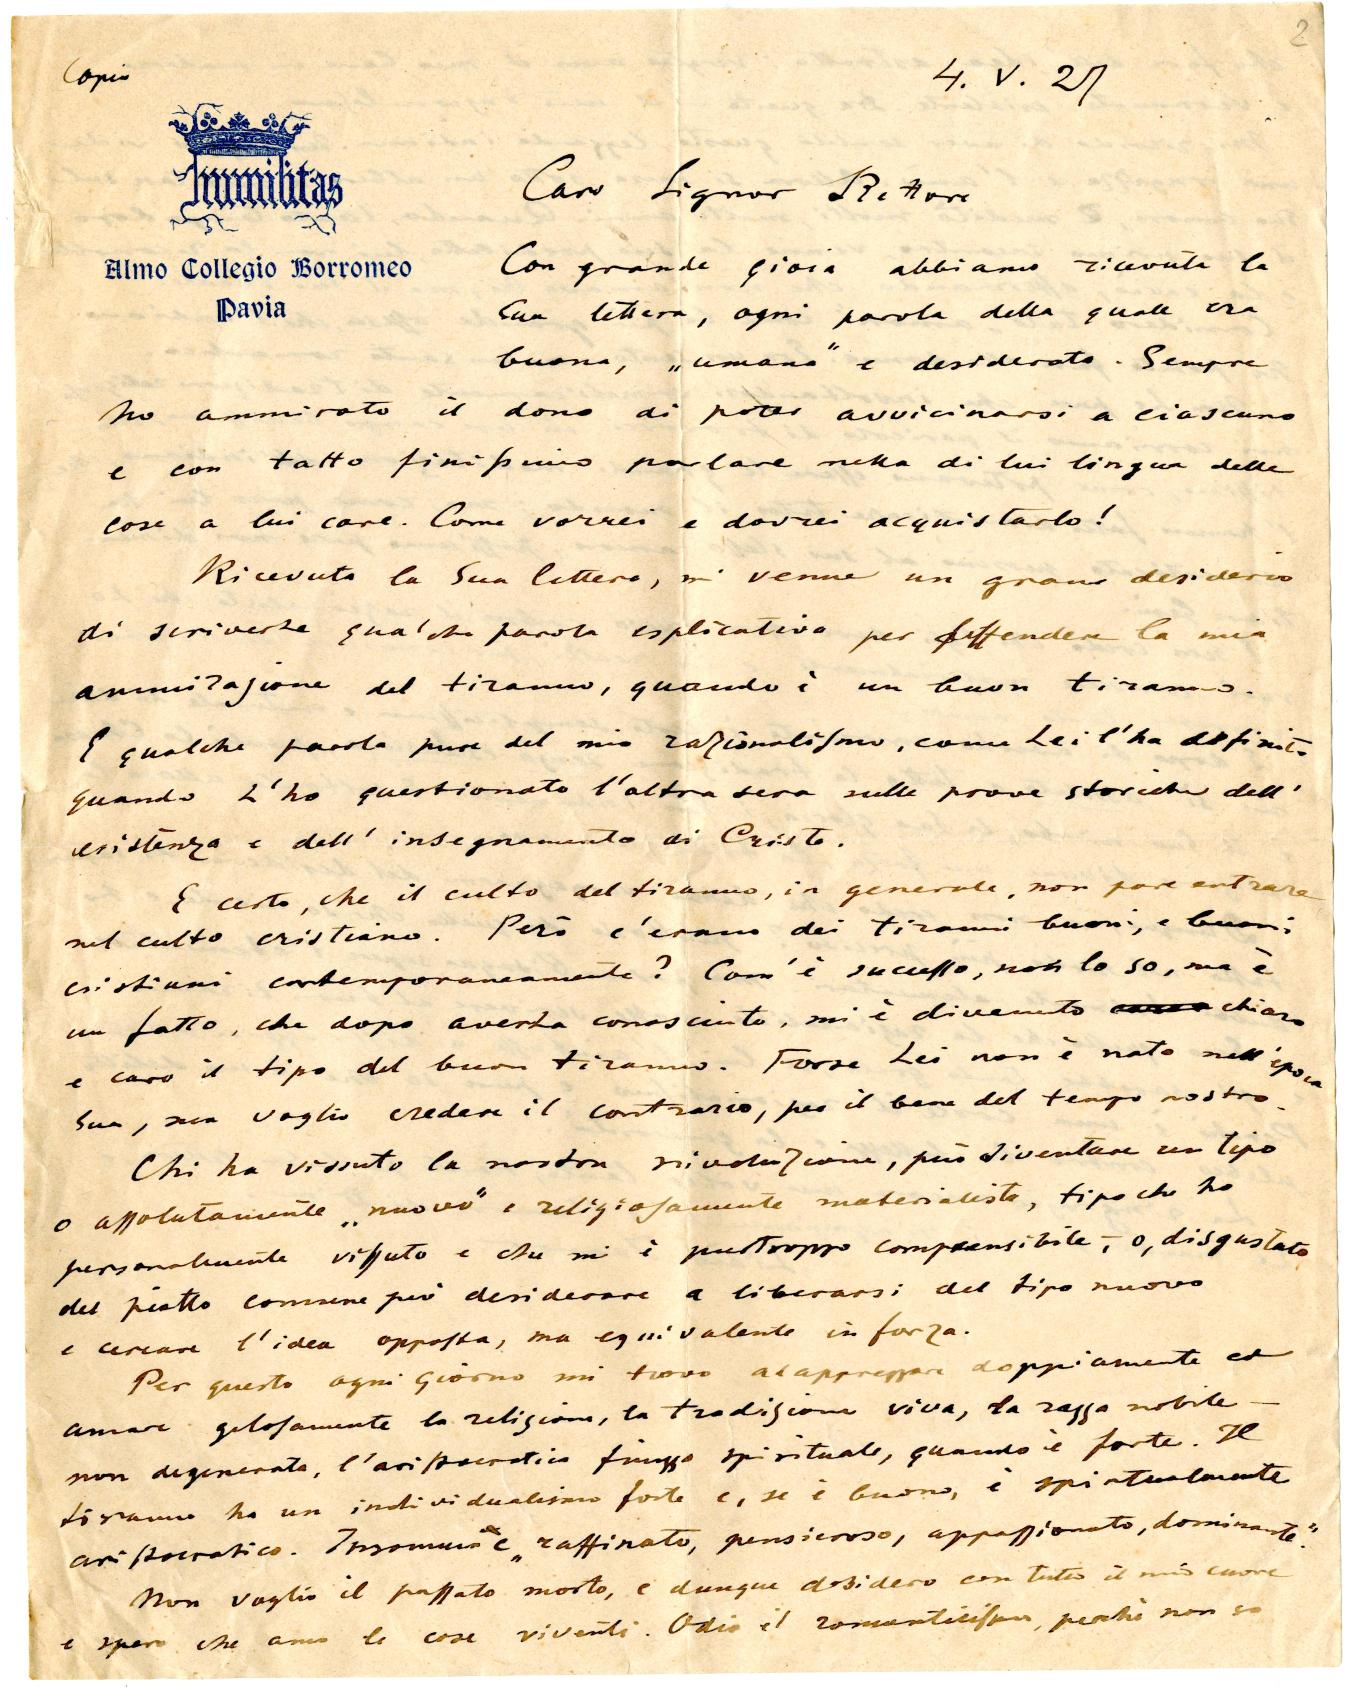 2
Copia
4. V. 27
Humilitas
Almo Collegio Borromeo
Pavia
Caro Signor Rettore
Con grande gioia abbiamo ricevuta la
Sua lettera, ogni parola della quale era
buona, „umana" e desiderata. Sempre
ho ammirato il dono di poter avvicinarsi a ciascuno
e con tatto finissimo parlare nella di lui lingua delle
cose a lui care. Come vorrei e dovrei acquistarlo!
Ricevuta la Sua lettera, mi venne un grande desiderio
di scriverLe qualche parola esplicativa per diffendere la mia
ammirazione del tiranno, quando è un buon tiranno.
E qualche parola pure del mio razionalismo, come Lei l'ha definito
quando L'ho questionato l'altra sera sulle prove storiche dell'
esistenza e dell' insegnamento di Cristo.
È certo, che il culto del tiranno, in generale, non pare entrare
nel culto cristiano. Però c'erano dei tiranni buoni, e buoni
cristiani contemporaneamente? Com'è successo, non lo so, ma è
un fatto, che dopo averLa conosciuto, mi è divenuto chiaro
e caro il tipo del buon tiranno. Forse Lei non è nato nell'epoca
Sua, ma voglio credere il contrario, per il bene del tempo nostro.
Chi ha vissuto la nostra rivoluzione, può diventare un tipo
o assolutamente „nuovo" e religiosamente materialista, tipo che ho
personalmente vissuto e che mi è purtroppo comprensibile, o, disgustato
del piatto comune può desiderare a liberarsi del tipo nuovo
e cercare l'idea opposta, ma equivalente in forza.
Per questo ogni giorno mi trovo ad apprezzare doppiamente ed
amare gelosamente la religione, la tradizione viva, la razza nobile –
non degenerata, l'aristocratica finezza spirituale, quando è forte. Il
tiranno ha un individualismo forte e, se è buono, è spiritualmente
aristocratico. Insomma è „raffinato, pensieroso, appassionato, dominante".
Non voglio il passato morto, e dunque desidero con tutto il mio cuore
e spero che amo le cose viventi. Odio il romanticismo, perchè non so